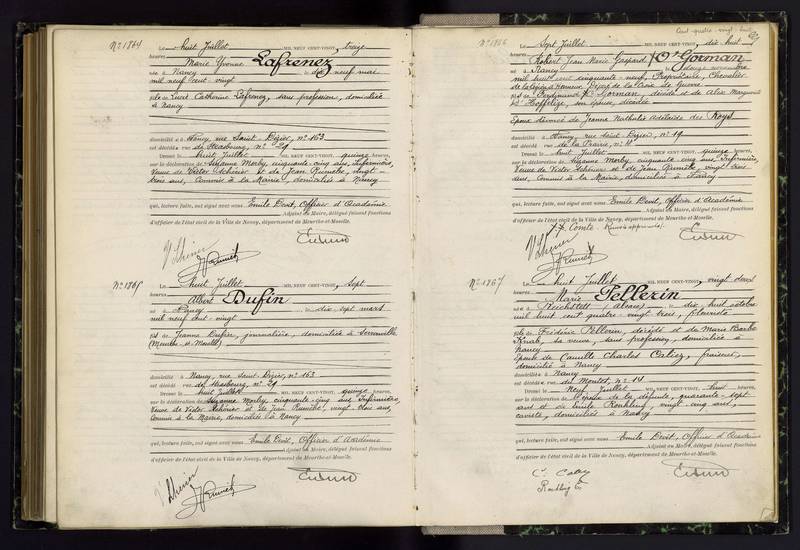 N° 1864
Le huit Juillet MIL NEUF CENT-VINGT, treize
heures
Marie Yvonne Lafrenez
née à Nancy le dix neuf mai
mil neuf cent vingt
fille de Lucie Catherine Lafrenez, sans profession, domiciliée
à Nancy
domicilié à Nancy, rue Saint Dizier, n° 163
est décédé rue de Strasbourg, n° 29
Dressé le huit Juillet MIL NEUF CENT-VINGT, quinze heures,
sur la déclaration de Suzanne Morby, cinquante-cinq ans, Infirmière,
Veuve de Victor Schérier et de Jean Runnéte, vingt-
trois ans, Commis à la Mairie, domiciliés à Nancy
qui, lecture faite, ont signé avec nous Emile Devit, Officier d'Académie
Adjoint au Maire, délégué faisant fonctions
d'officier de l'état civil de la Ville de Nancy, département de Meurthe-et-Moselle.
N° 1865
Le huit Juillet MIL NEUF CENT-VINGT, sept
heures
Albert Dufin
né à Nancy le dix sept mars
mil neuf cent vingt
fils de Jeanne Dufin, journalière, domiciliée à
(Meurthe et Moselle)
domicilié à Nancy, rue Saint Dizier, n° 163
est décédé rue de Strasbourg, n° 29
Dressé le huit Juillet MIL NEUF CENT-VINGT, quinze heures,
sur la déclaration de Suzanne Morby, cinquante-cinq ans, Infirmière,
Veuve de Victor Schérier et de Jean Runnéte, vingt-trois ans,
Commis à la Mairie, domiciliés à Nancy
qui, lecture faite, ont signé avec nous Emile Devit, Officier d'Académie
Adjoint au Maire, délégué faisant fonctions
d'officier de l'état civil de la Ville de Nancy, département de Meurthe-et-Moselle.
Cent quatre-vingt-huit
N° 1866
Le Sept Juillet MIL NEUF CENT-VINGT, dix huit
heures
Robert Jean Marie Gaspard O'Gorman
né à Nancy le douze novembre
mil huit cent cinquante-neuf, Propriétaire, Chevalier
de la Légion d'Honneur, Décoré de la Croix de Guerre
fils de Ferdinand O'Gorman, décédé et de Alix Marguerite
d'Hoffelize, son épouse, décédée
Epoux divorcé de Jeanne Nathalie Adélaïde des Roys
domicilié à Nancy, rue Saint Dizier, n° 19
est décédé rue de la Prairie, n° 4
Dressé le huit Juillet MIL NEUF CENT-VINGT, quinze heures,
sur la déclaration de Suzanne Morby, cinquante cinq ans, Infirmière,
Veuve de Victor Schérier et de Jean Runnéte, vingt trois
ans, Commis à la Mairie, domiciliés à Nancy
qui, lecture faite, ont signé avec nous Emile Devit, Officier d'Académie
Adjoint au Maire, délégué faisant fonctions
d'officier de l'état civil de la Ville de Nancy, département de Meurthe-et-Moselle.
Comte
N° 1867
Le huit Juillet MIL NEUF CENT-VINGT, vingt deux
heures
Marie Pellerin
née à Reichstett (Alsace) le dix huit octobre
mil huit cent quatre-vingt trois, fleuriste
fille de Frédéric Pellerin, décédé et de Marie Barbe
Knab, sa veuve, sans profession, domiciliée à
Nancy
Epouse de Camille Charles
domicilié à Nancy
domiciliée à Nancy
est décédée rue du Montet, n° 14
Dressé le Neuf Juillet MIL NEUF CENT-VINGT, huit heures,
sur la déclaration de l'époux de la défunte, quarante-sept
ans et de Emile Roehling, vingt-cinq ans,
caviste, domiciliés à Nancy
qui, lecture faite, ont signé avec nous Emile Devit, Officier d'Académie
Adjoint au Maire, délégué faisant fonctions
d'officier de l'état civil de la Ville de Nancy, département de Meurthe-et-Moselle.
Roehling E.